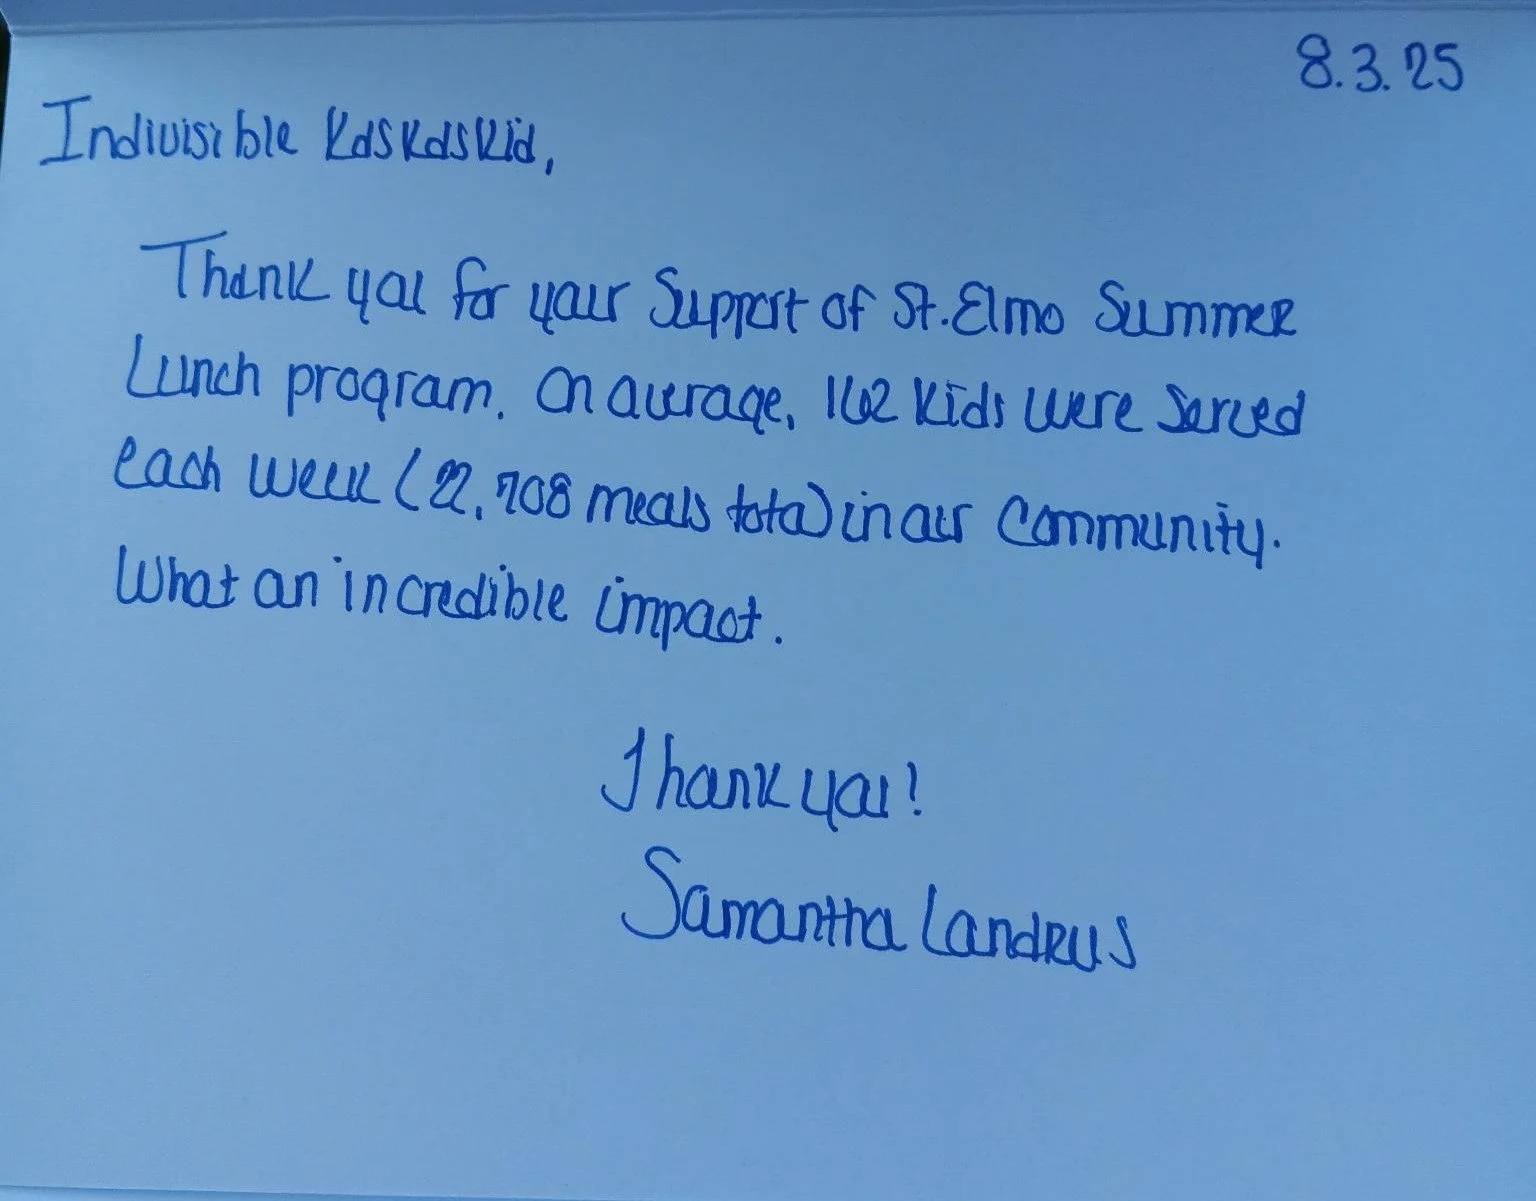 8.3.25
Indivisible Kaskaskia,
Thank you for your Support of St. Elmo Summer
Lunch program. On average, 162 kids were served
each week (22,708 meals total) in our community.
What an incredible impact.
Thank you!
Samantha Landrus